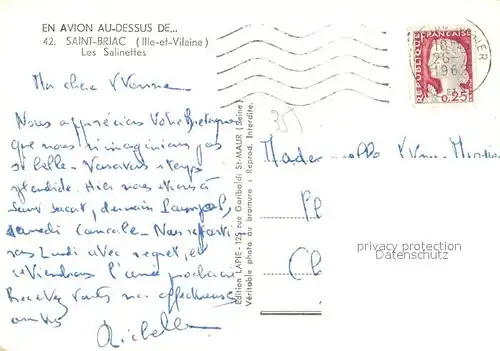 EN AVION AU-DESSUS DE...
42. SAINT-BRIAC (Ille-et-Vilaine)
Les Salinettes
Ma chère Yvonne
Nous apprécions Votre Bretagne
que nous n'imaginions pas
si belle. Nous avons un temps
splendide. Hier nous étions à
Saint Lunaire, demain
samedi Cancale. Nous
Lundi avec regret, et
reviendrons l'an prochain
Recevez toutes nos affectueuses
amitiés
35
Edition LAPIE - 125 rue Garibaldi St-MAUR (Seine)
Véritable photo au bromure : Reprod. Interdite.
REPUBLIQUE FRANCAISE
0,25
Mademoiselle Yvonne
Pl
Ch
privacy protection
Datenschutz